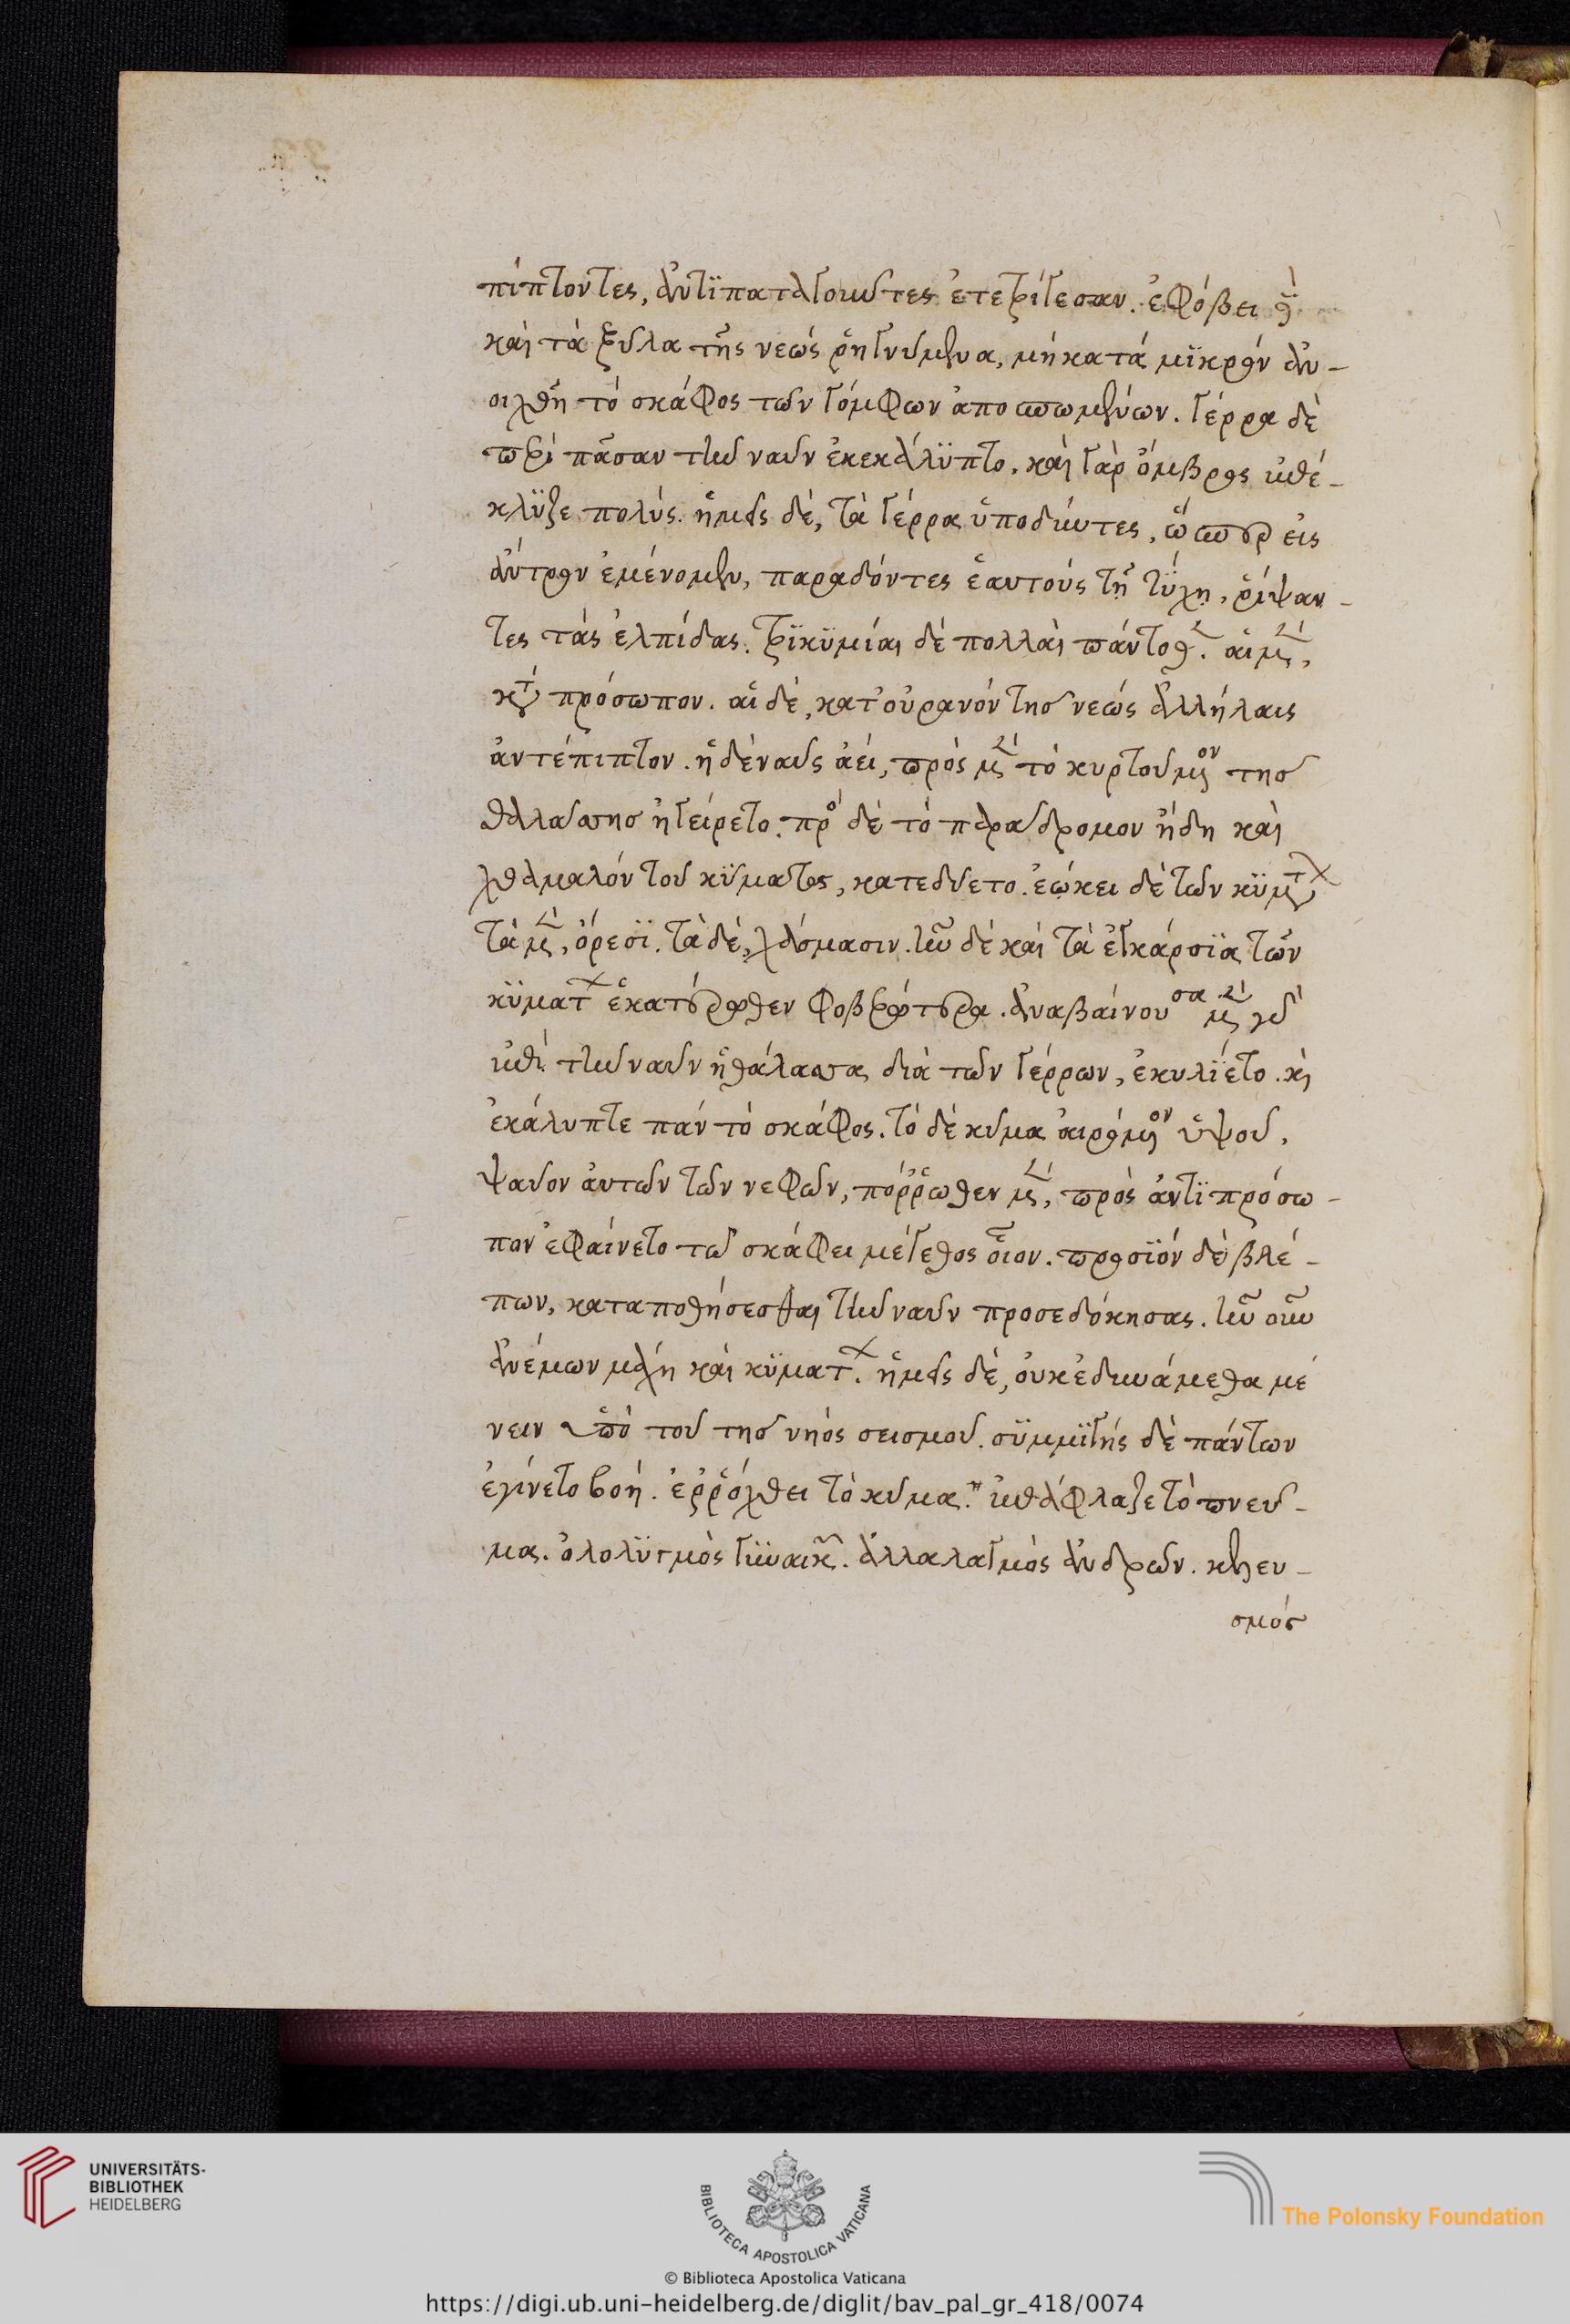 πίπτοντες, ἀντϊπαταγουντες ἐτετρίγεσαν. ἐφόβει γὰρ
καὶ τὰ ξῦλα τῆς νεώς ῥηγνύμενα, μὴ κατὰ μϊκρὸν ἀν-
οιχθῆ τὸ σκάφος τῶν γόμφων ἀποσπωμένων. γέρρα δὲ
περὶ πᾶσαν τὴν ναῦν ἐκεκάλϋπτο. καὶ γὰρ ὄμβρος ἐπέ-
κλϋζε πολύς. ἡμεῖς δέ, τὰ γέρρα ὑποδύντες, ὥσπερ εἰς
ἄντρον ἐμένομεν, παραδόντες ἑαυτοὺς τῇ τύχῃ, ῥίψαν-
τες τὰς ἐλπίδας. τρϊκϋμίαι δὲ πολλαὶ πάντοθεν. αἱ μὲν,
κατὰ πρόσωπον. αἱ δέ, κατ' οὐρανόν τῆς νεώς ἀλλήλαις
ἀντέπιπτον. ἡ δὲ ναῦς ἀεὶ, πρὸς μὲν τὸ κυρτούμενον τῆς
θαλάσσης ἠγείρετο. πρὸ δὲ τὸ παράδρομον ἤδη καὶ
χθαμαλόν τοῦ κύματος, κατεδύετο. ἐῴκει δὲ τῶν κϋμάτων
τὰ μὲν, ὄρεσϊ. τὰ δέ, χάσμασιν. ἦν δὲ καὶ τὰ ἐγκάρσϊα τῶν
κϋμάτων ἑκατέρωθεν φοβερώτερα. ἀναβαίνουσα μὲν γὰρ
ἐπὶ τὴν ναῦν ἡ θάλασσα, διὰ τῶν γέρρων, ἐκυλίετο. καὶ
ἐκάλυπτε πᾶν τὸ σκάφος. τὸ δὲ κῦμα αἰρόμενον ὑψοῦ,
ψαῦον αὐτῶν τῶν νεφῶν, πόῤῥωθεν μὲν, πρὸς ἀντϊπρόσω-
πον ἐφαίνετο τῶ σκάφει μέγεθος οἷον. προσϊόν δὲ βλέ-
πων, καταποθήσεσθαι τὴν ναῦν προσεδόκησας. ἦν οὖν
ἀνέμων μάχη καὶ κϋμάτων. ἡμεῖς δέ, οὐκ ἐδυνάμεθα μέ
νειν ὑπὸ τοῦ τῆς νηός σεισμοῦ. σϋμμϊγής δὲ πάντων
ἐγίνετο βοή. ἐῤῥόχθει τὸ κῦμα. ἐπάφλαζε τὸ πνεῦ-
μα. ὀλολϋγμὸς γϋναικῶν. ἀλλαλαγμὸς ἀνδρῶν. κελευ-
σμός
UNIVERSITÄTS-
BIBLIOTHEK
HEIDELBERG
BIBLIOTECA APOSTOLICA VATICANA
© Biblioteca Apostolica Vaticana
The Polonsky Foundation
https://digi.ub.uni-heidelberg.de/diglit/bav_pal_gr_418/0074